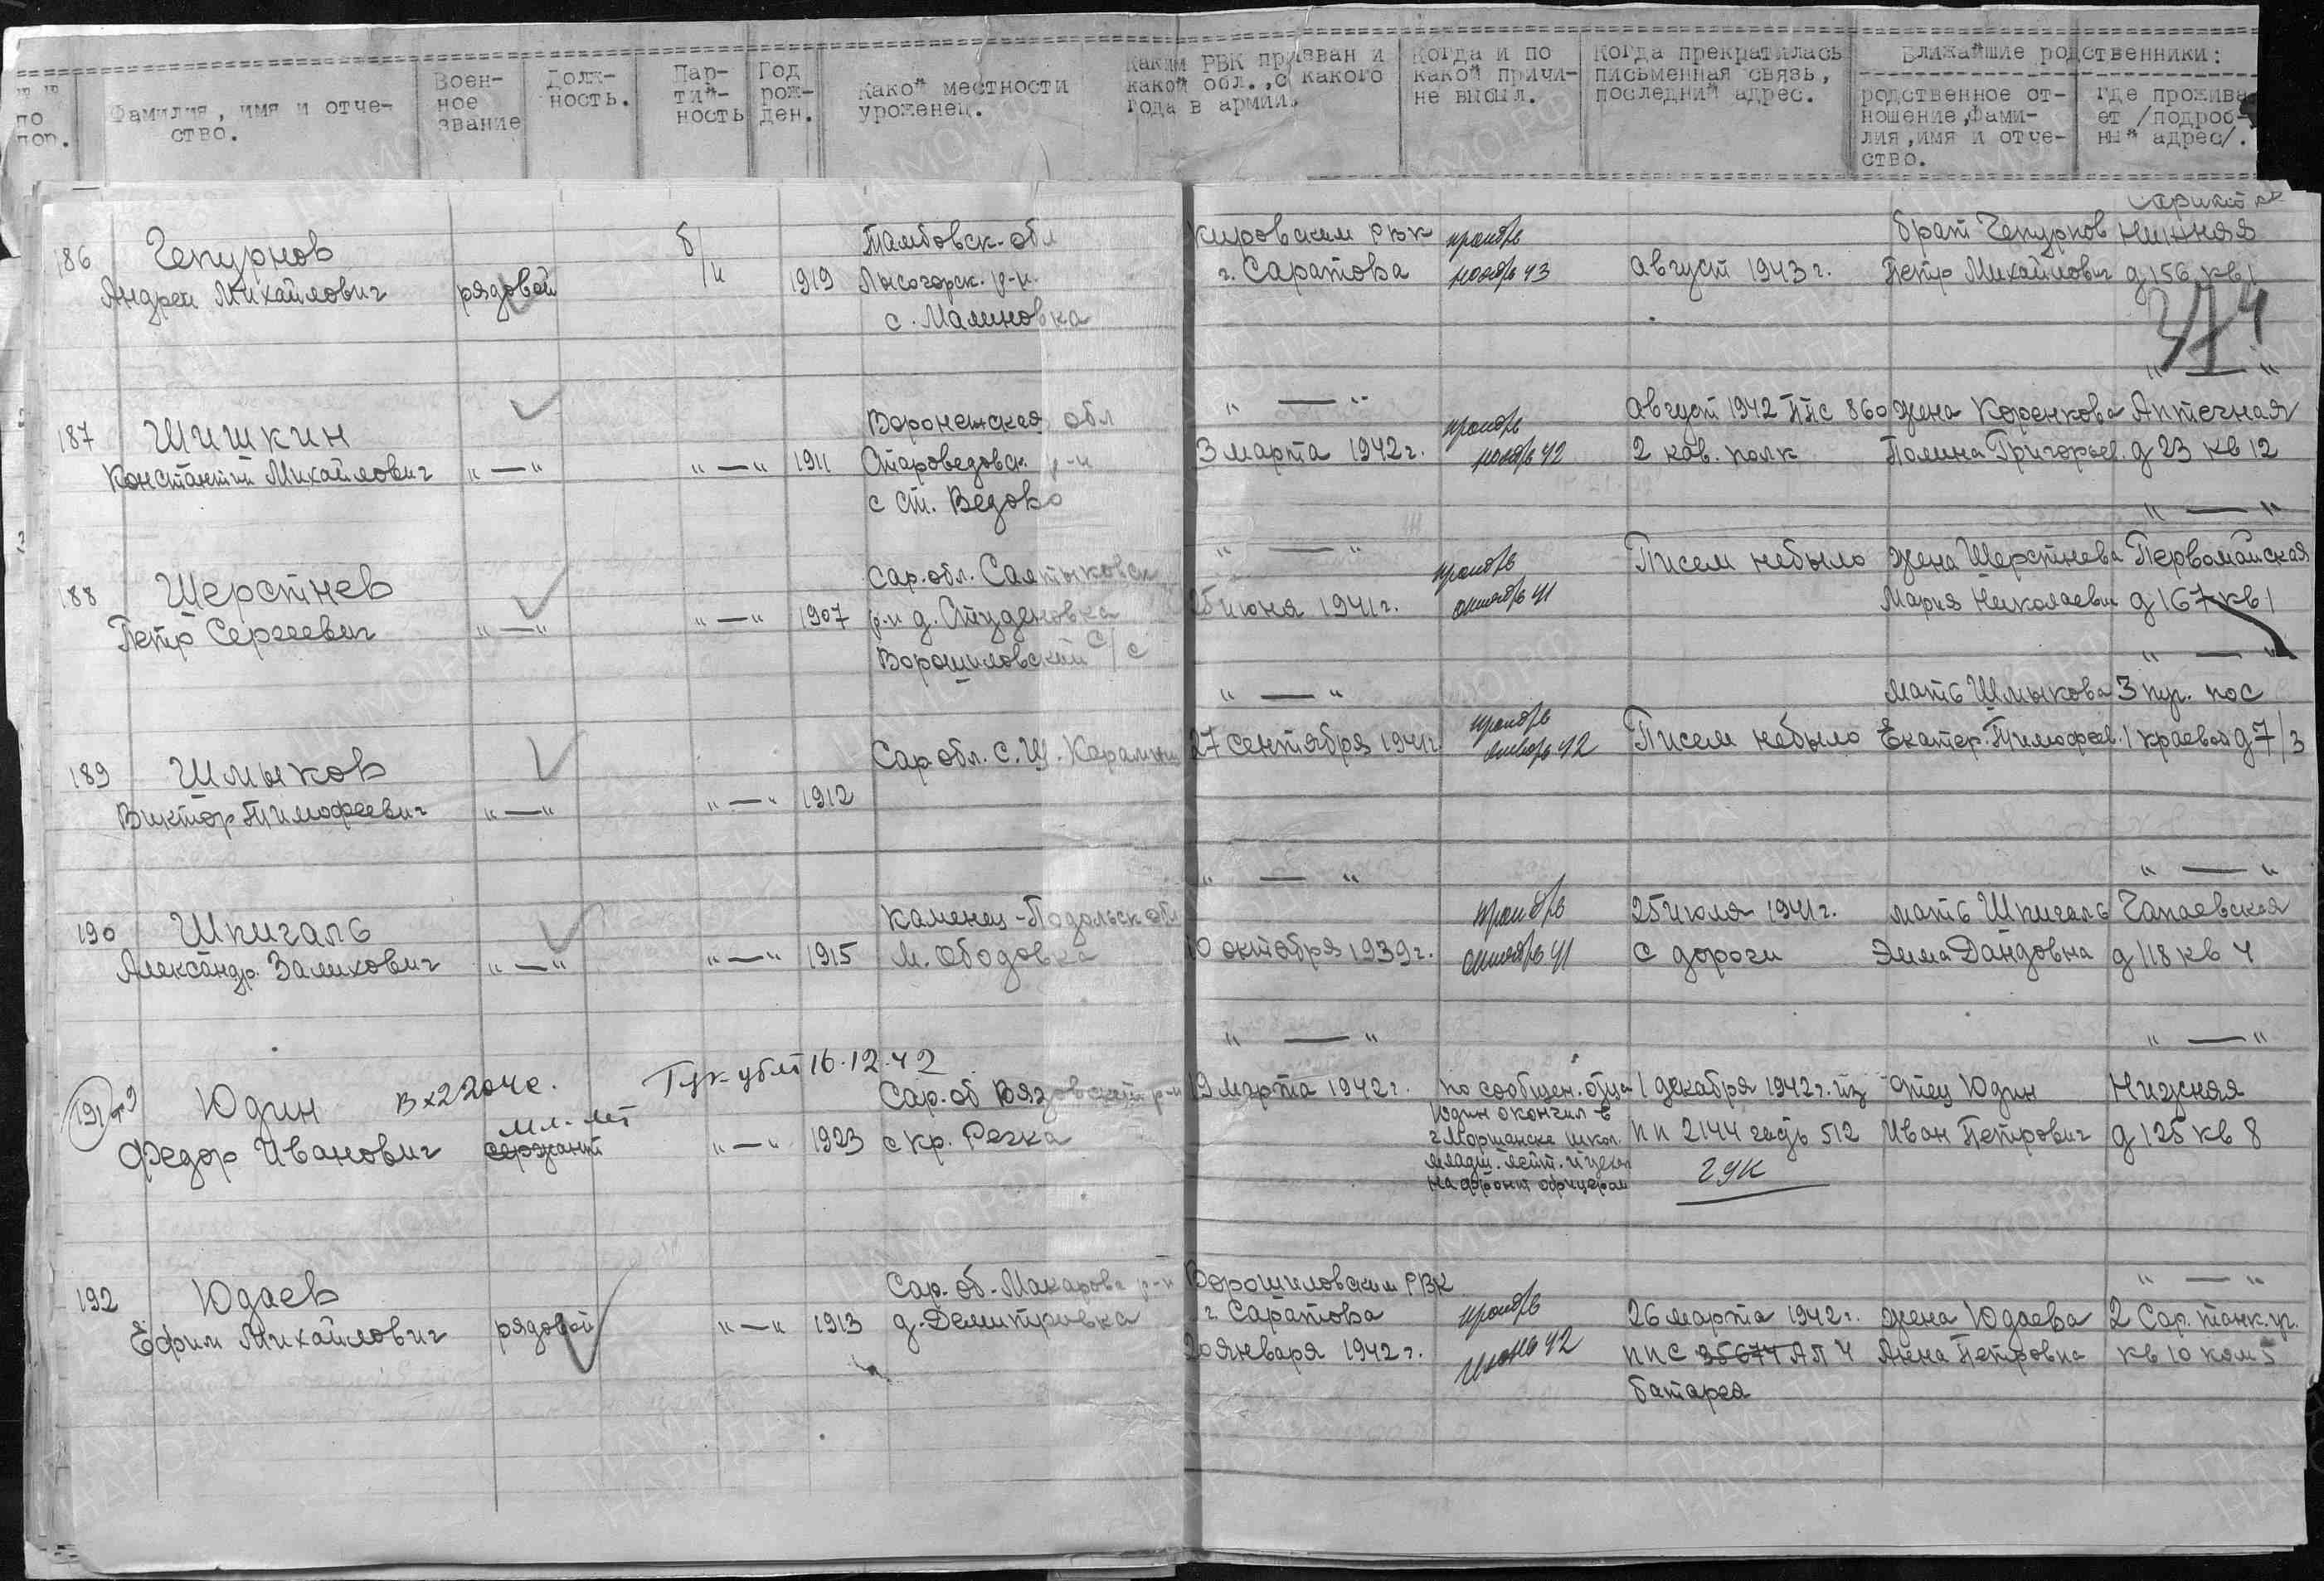 № №
по
пор.
Фамилия, имя и отче-
ство.
Воен-
ное
звание
Долж-
ность.
Пар-
тий-
ность
Год
рож-
ден.
Какой местности
уроженец.
Каким РВК призван и
какой обл., с какого
года в армии.
Когда и по
какой причи-
не выбыл.
Когда прекратилась
письменная связь,
последний адрес.
Ближайшие родственники:
родственное от-
ношение, фами-
лия, имя и отче-
ство.
Где прожива-
ет /подроб-
ный адрес/.
186
Чепурнов
Андрей Михайлович
рядовой
б/п
1919
Тамбовск. обл
Лысогорск. р-н.
с. Малиновка
Кировским РВК
г. Саратова
ноябрь 43
Август 1943 г.
брат Чепурнов
Петр Михайлович
Нижняя
д 156 кв 1
187
Шишкин
Константин Михайлович
" — "
" — "
1911
Воронежская обл
Староведовск. р-н
с Ст. Ведово
" — "
3 марта 1942 г.
ноябрь 42
Август 1942 ППС 860
2 кав. полк
жена Коренкова
Полина Григорьев.
" — "
Аптечная
д 23 кв 12
188
Шерстнев
Петр Сергеевич
" — "
" — "
1907
Сар. обл. Салтыковск
р-н д. Студеновка
Ворошиловский с/с
" — "
25 июня 1941 г.
октябрь 41
Писем небыло
жена Шерстнева
Мария Николаевн
" — "
Первомайская
д 167 кв 1
189
Шмыков
Виктор Тимофеевич
" — "
" — "
1912
Сар. обл. с. Ш. Карамыш
" — "
27 сентября 1941 г
январь 42
Писем небыло
мать Шмыкова
Екатер. Тимофеев.
" — "
3 пр. пос
1 краевой д 7/3
190
Шпигаль
Александр Залихович
" — "
" — "
1915
Каменец-Подольск обл
М. Ободовка
" — "
10 октября 1939 г.
октябрь 41
25 июля 1941 г.
с дороги
мать Шпигаль
Эмма Давидовна
" — "
Чапаевская
д 118 кв 4
191
Юдин
Федор Иванович
Вх 2204с.
мл. лт
сержант
16.12.42
" — "
1923
Сар. об Вязовский р-н
с Кр. Речка
" — "
19 марта 1942 г.
по сообщен. отца
Юдин окончил в
г Моршанске школ.
младш. лейт. и уехал
на фронт офицером
1 декабря 1942 г. из
ПП 2144 часть 512
ГУК
отец Юдин
Иван Петрович
" — "
Нижняя
д 125 кв 8
192
Юдаев
Ефим Михайлович
рядовой
" — "
1913
Сар. об. Макарова р-н
д. Демитровка
Ворошиловским РВК
г. Саратова
20 января 1942 г.
июнь 42
26 марта 1942 г.
ППС 35674 АП 4
батарея
жена Юдаева
Анна Петровна
" — "
2 Сар. танк. уч.
кв 10 ком 5